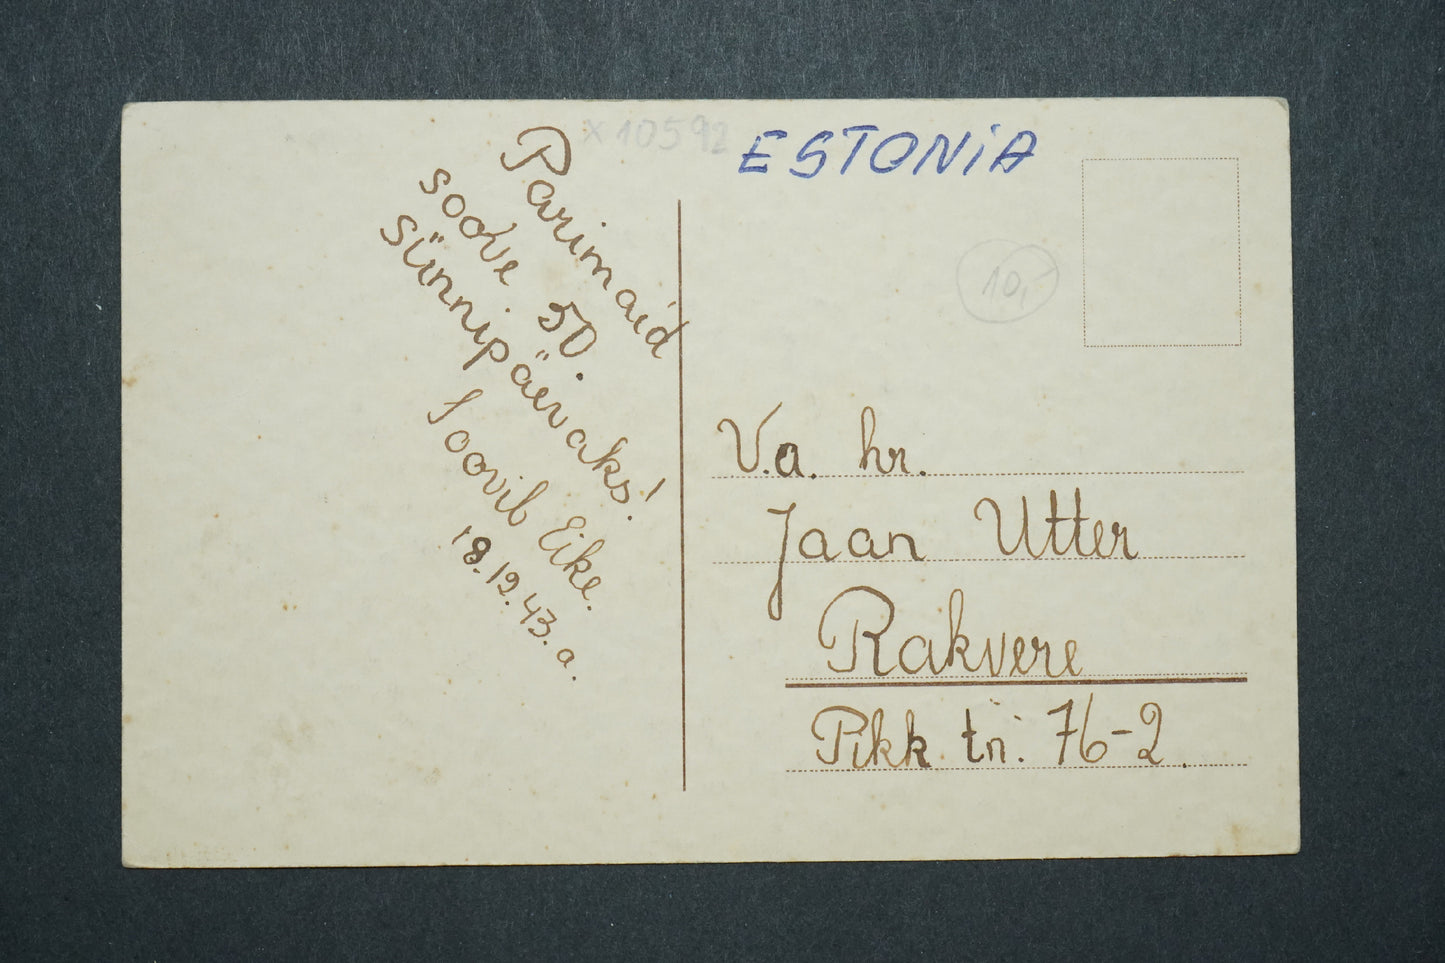 x 10592
ESTONiA
10,-
Parimaid
soove 50.
sünnipäevaks!
Soovib Eike.
18.12.43.a.
V.a. hr.
Jaan Utter
Rakvere
Pikk tn. 76-2.